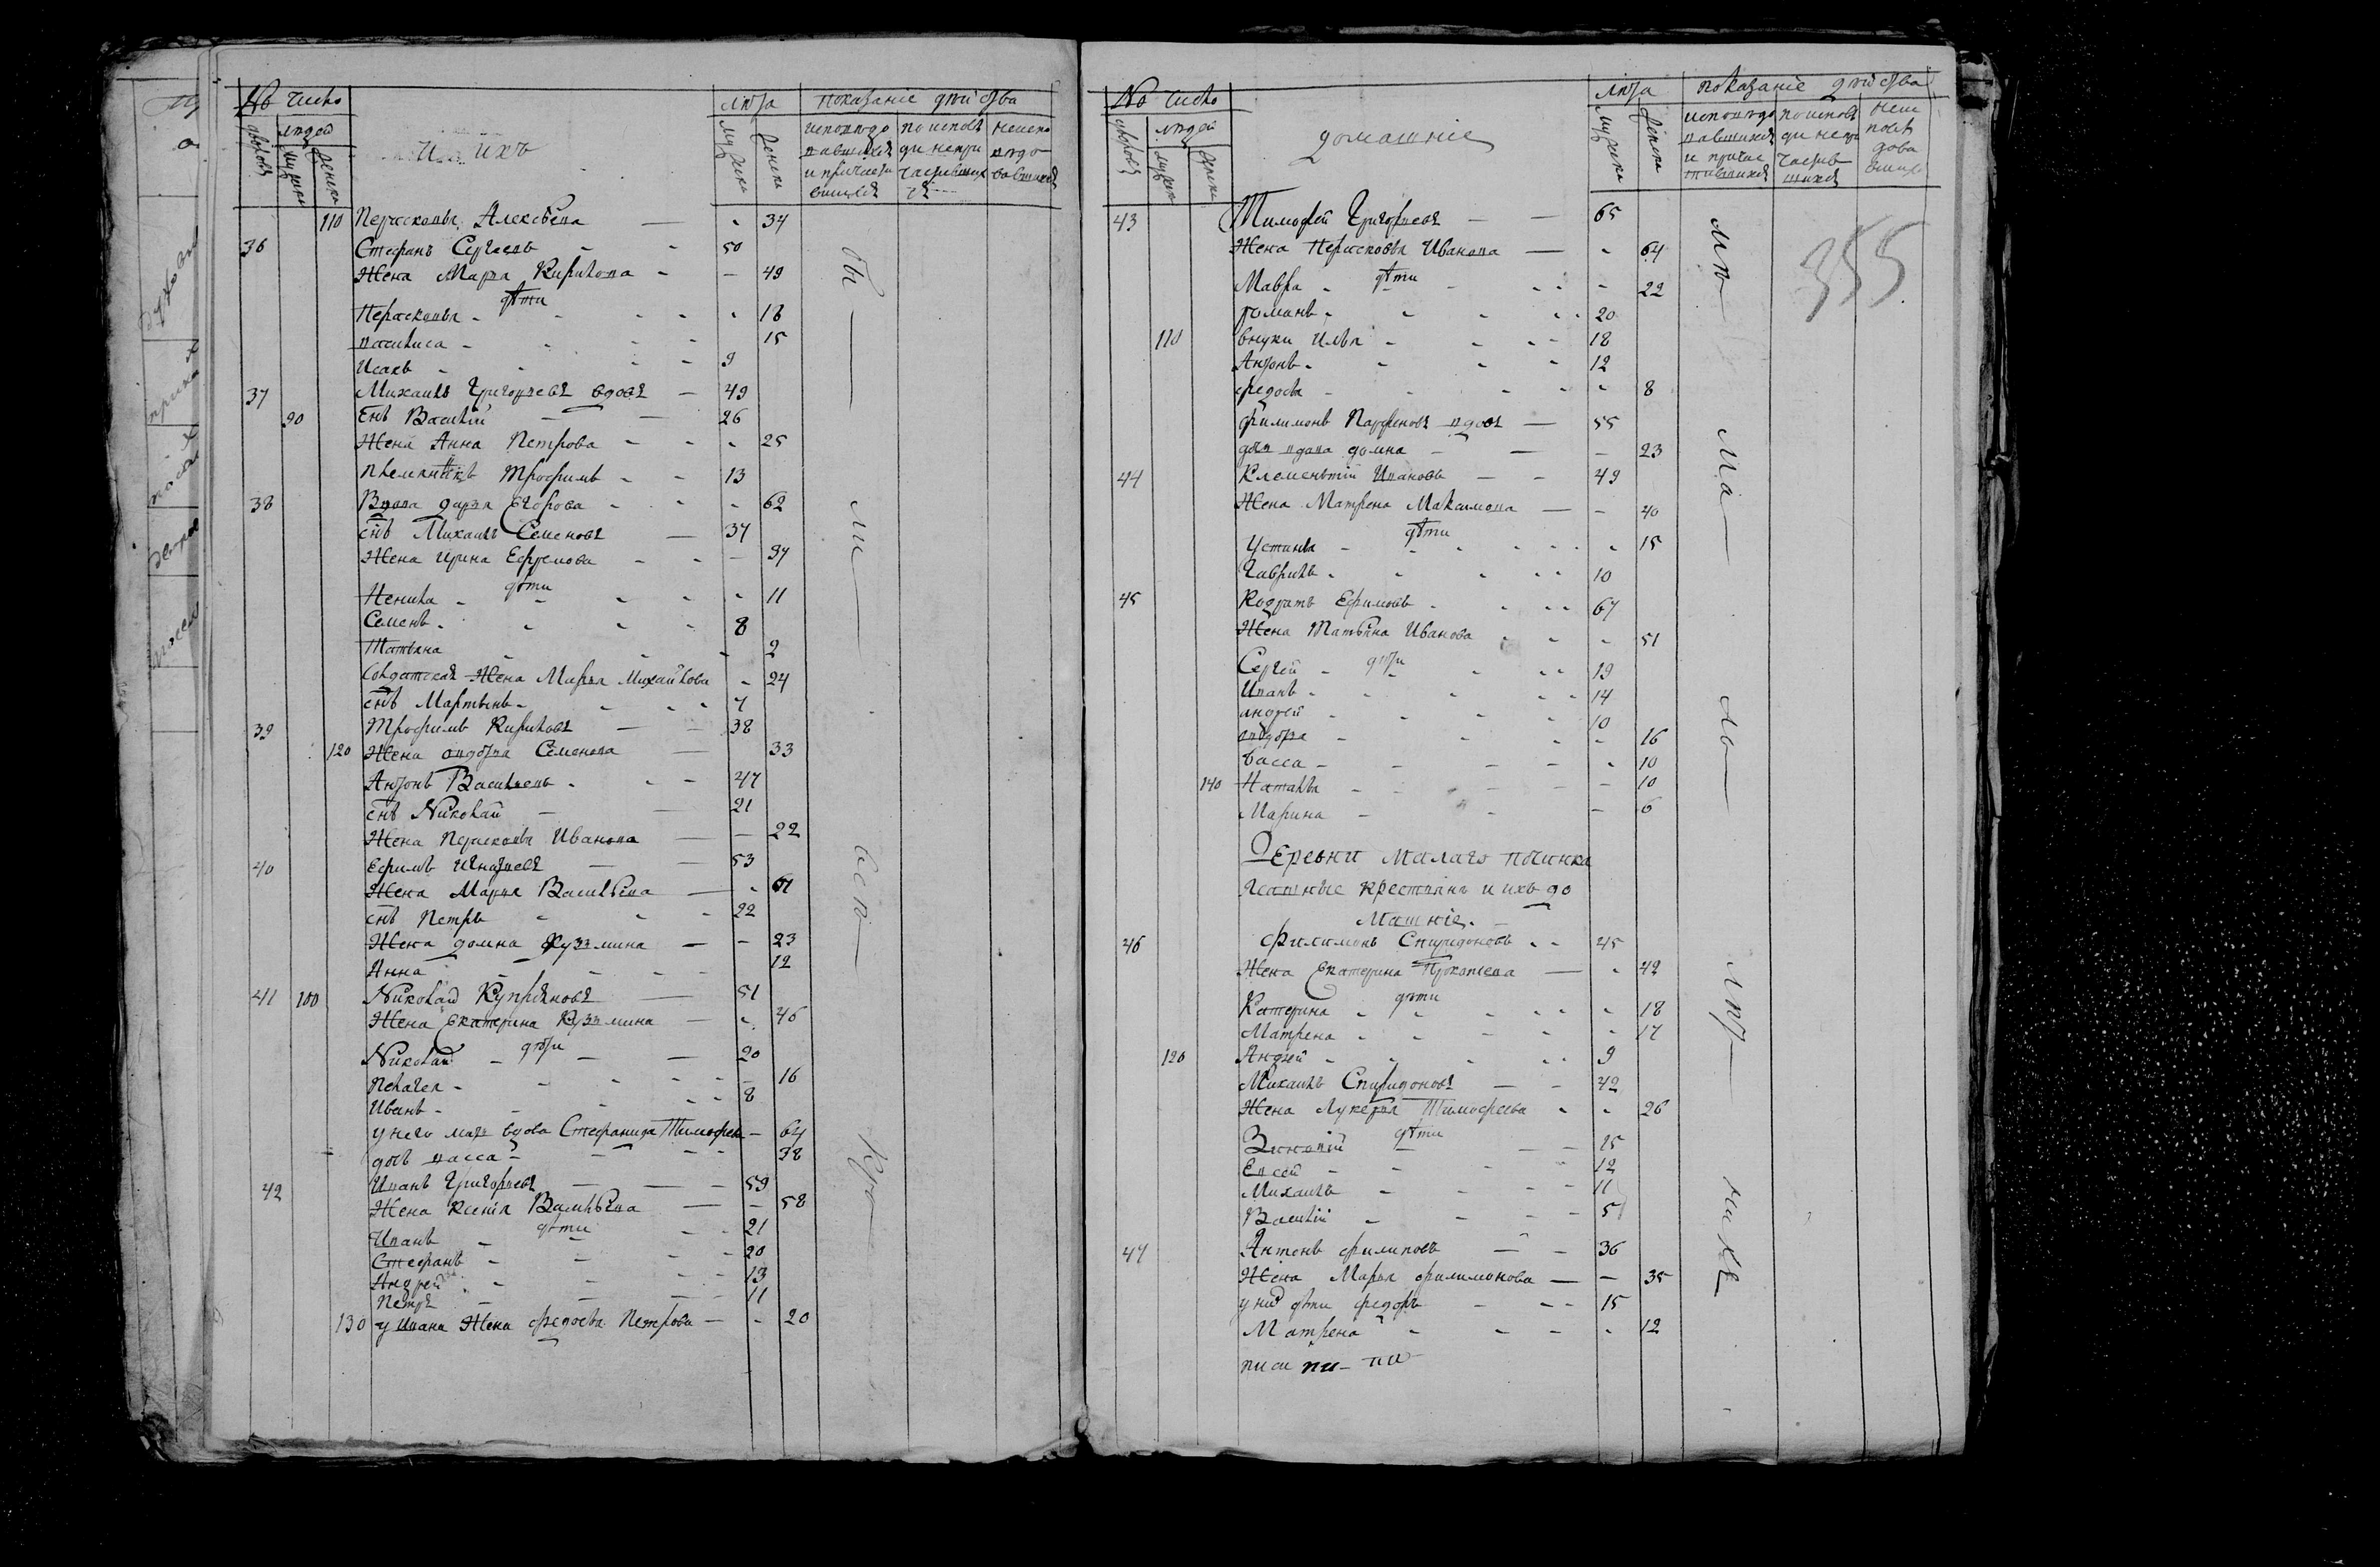 № число
людей
дворовъ
мужска
женска
и ихъ
лѣта
мужска
женска
показаніе дѣйства
исповѣдо
вавшихся
и причасти
вшихся
по исповѣ
ди непри
частивших
ся
неиспо
вѣдо
вавшихся
110 Перасковья Алексѣева — - 34
36 Стефанъ Сергеевъ - - 50
Жена Марья Кирилова - — 49
дѣти
Перасковья - - - - 18
василиса - - - - 15
Исакъ - - - - 9
37 Михаилъ Григорьевъ вдовъ — 49
90 Снъ Василій — — 26
Жена Анна Петрова - - - 25
племянникъ Трофимъ - - 13
38 Вдова дарья Егорова - - - 62
снъ Михаилъ Семеновъ — 37
Жена ирина Ефремова - - — 37
дѣти
Ненила - - - - - 11
Семенъ - - - - 8
Татьяна - - - 2
Солдатская Жена Марья Михайлова - 24
снъ Мартынъ - - - - 7
39 Трофимъ Кириловъ — — 38
120 Жена авдотья Семенова — 33
Антонъ Васильевъ - - — 47
снъ Николай — — 21
Жена Перасковья Иванова — — 22
40 Ефимъ Игнатьевъ — — 53
Жена Марья Васильева — - 51
снъ Петръ - - - 22
Жена домна Кузьмина — — 23
Анна - - - - 12
41 100 Николай Купріяновъ — 51
Жена Екатерина Кузьмина — - 46
дѣти
Николай - — — 20
Пелагея - - - - - 16
Иванъ - - - - 8
у него мать вдова Стефанида Тимофеева — 64
дочь васса - - - - 38
42 Иванъ Григорьевъ — — — 59
Жена Ксенія Васильева — — 58
дѣти
Иванъ - - - - 21
Стефанъ - - - - 20
Андрей - - - - 13
Петръ - - - - 11
130 у ивана Жена федосья Петрова — - 20
бы — ли — всп — кр —
№ число
людей
дворовъ
мужска
женска
домашніе
лѣта
мужска
женска
показаніе дѣйства
исповѣдо
вавшихся
и причас
тившихся
по исповѣ
ди непри
частив
шихся
неис
повѣ
дова
вшихся
355
43 Тимофей Григорьевъ — — 65
Жена Перасковья Иванова — - 64
дѣти
Мавра - - - - - 22
романъ - - - - - 20
110 внуки Илья - - - - 18
Антонъ - - - - 12
федосья - - - - - 8
филимонъ Парфеновъ вдовъ — 55
дочь вдова домна - — — 23
44 Клементій Ивановъ — — 49
Жена Матрена Максимова — — 40
дѣти
Устинья - - - - - - 15
Гаврилъ - - - - - 10
45 Кодратъ Ефимовъ - - - - 67
Жена Татьяна Иванова - - - 51
дѣти
Сергей - - - - 19
Иванъ - - - - - 14
андрей - - - - 10
авдотья - - - - 16
Васса - - - - - 10
140 Наталья - - - - - 10
Марина - - — 6
Деревни Малаго починка
Ясашные крестьянъ и ихъ до
машніе
46 Филимонъ Спиридоновъ - - 45
Жена Екатерина Прокопьева — - 42
дѣти
Катерина - - - - - - 18
Матрена - - - - - 17
120 Андрей - - - - - 9
Михаилъ Спиридоновъ — — 42
Жена Лукерья Тимофеева - - 26
дѣти
Зиновій — — — 15
Евсей - - - - 12
Михаилъ - - - - 11
Василій - - - - 5
47 Антонъ филиповъ — — 36
Жена Марья филимонова — — 35
у них дѣти федоръ - - - 15
Матрена - - - - 12